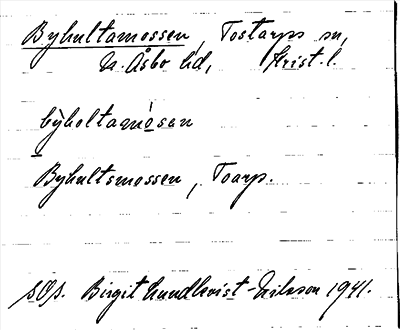 Byhultamossen, Tostarps sn,
N. Åsbo hd, Krist. l.
by̍holtamòsen
Byhultsmossen, Toarp.
sOp. Birgit Lundkvist-Nilsson 1941.